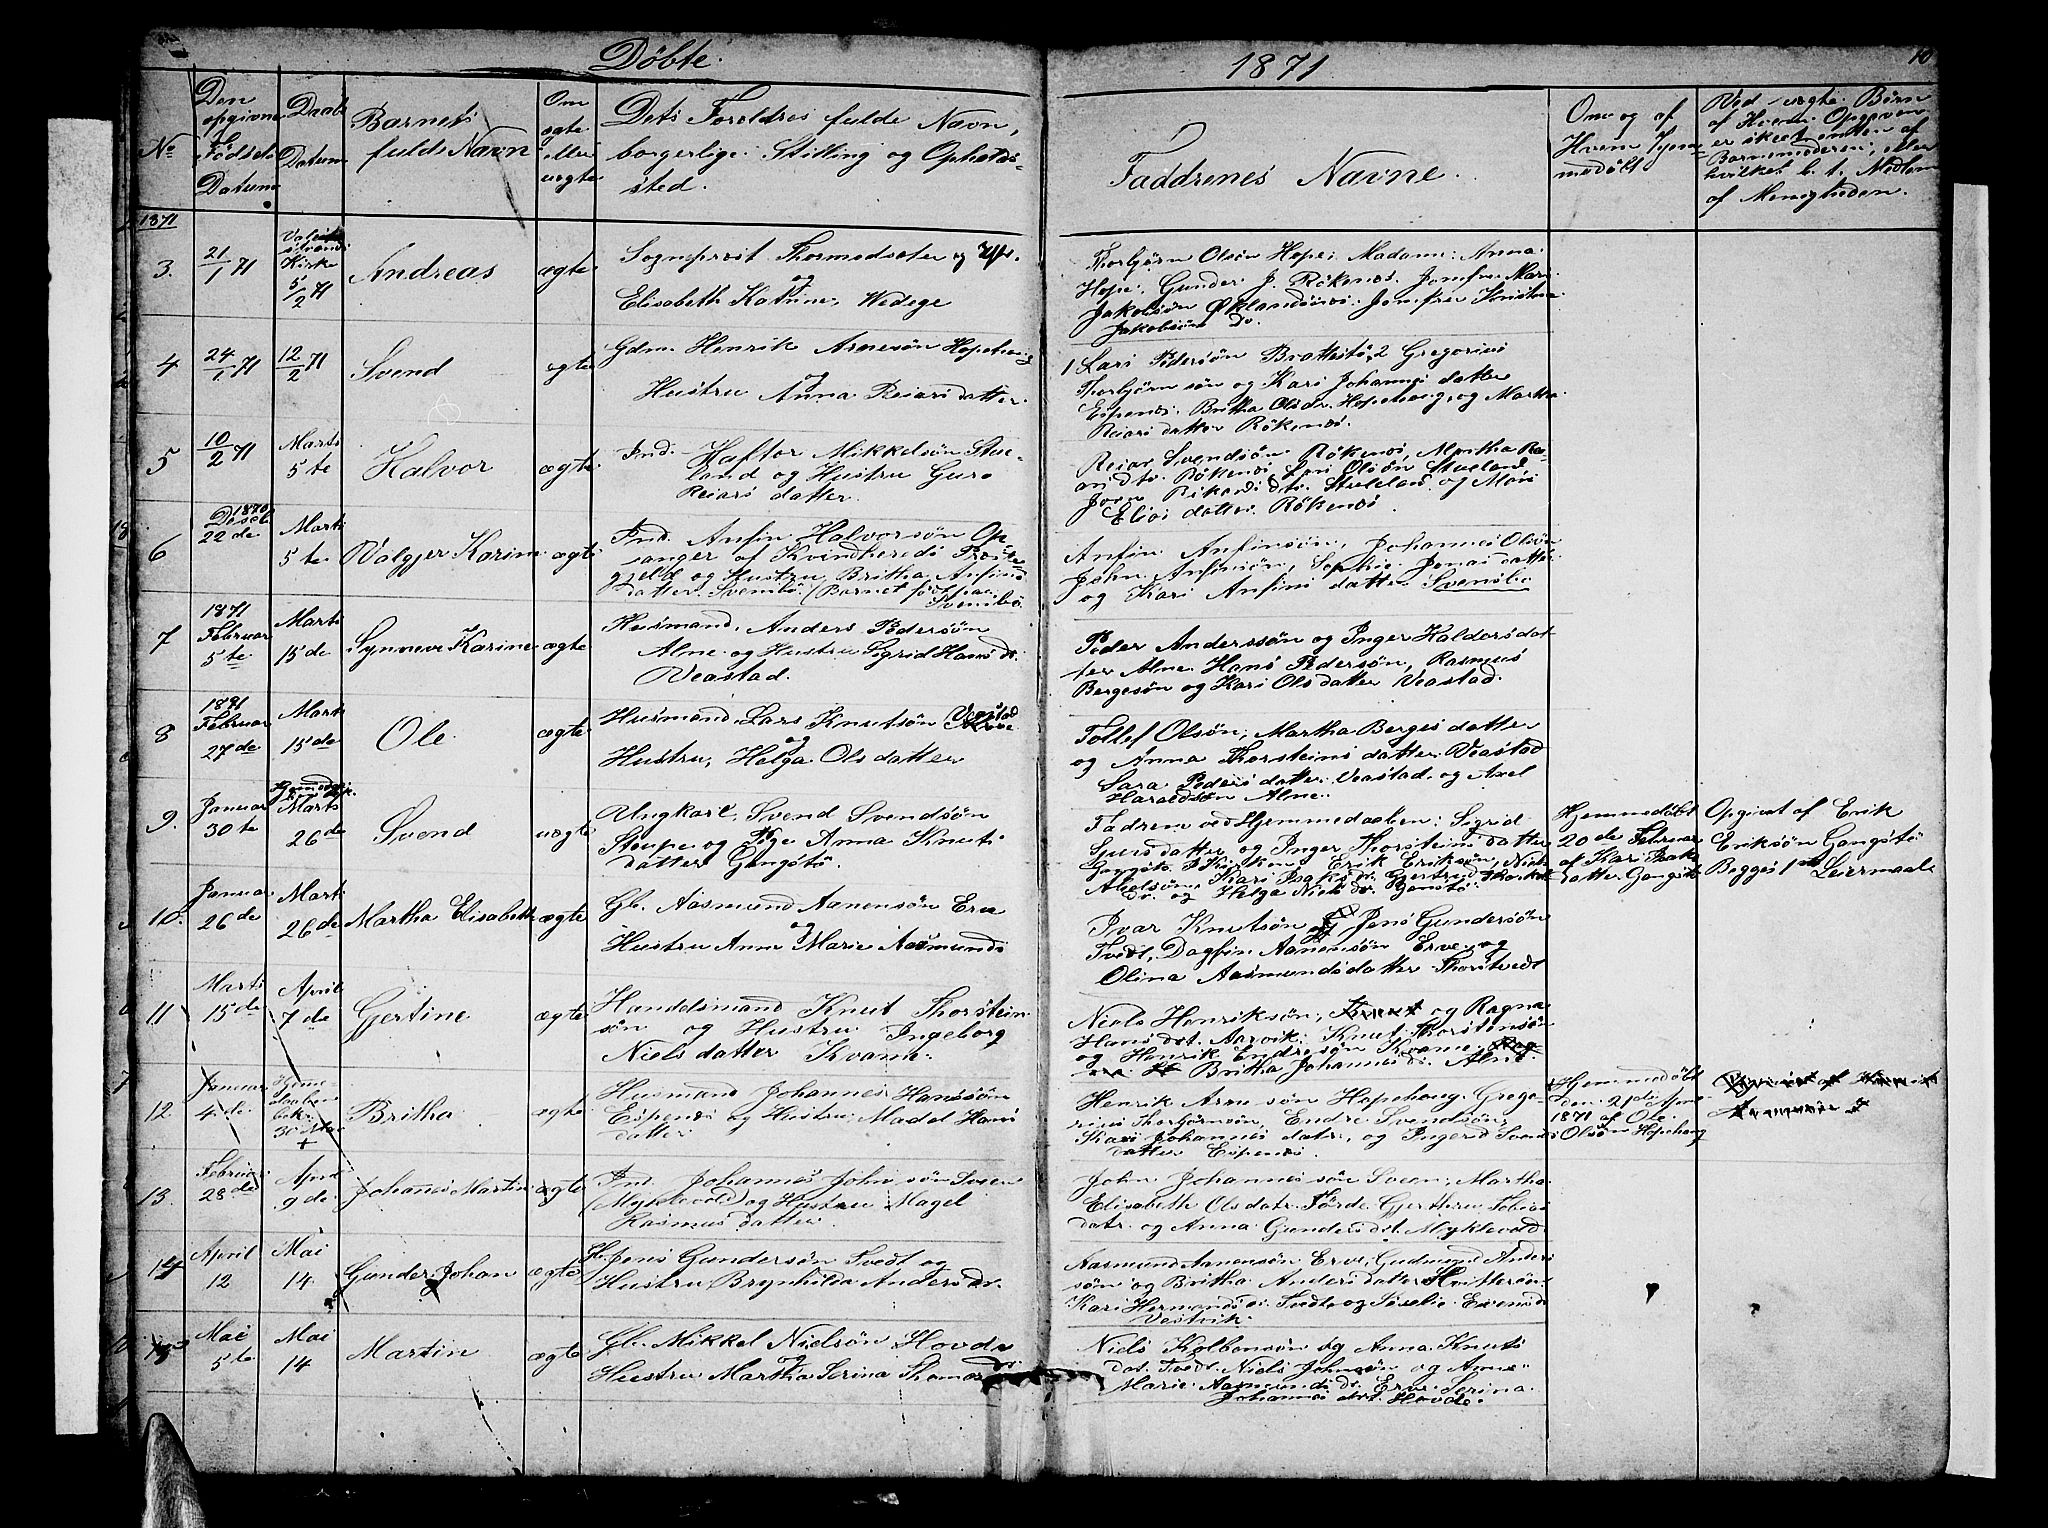 Døbte.
1871
10
No
Den opgivne Fødsels Datum
Daabs Datum
Barnets fulde Navn
Om ægte eller uægte
Dets Foreldres fulde Navn, borgerlige Stilling og Opholds-sted.
Faddrenes Navne.
Om og af Hvem Hjemmedøbt
Ved uægte Børn af Hvem Opgaven er skeet enten af Barnemoderen, eller hvilket b. t. Medlem af Menigheden.
1871
3.
21/1 71
Kirke
5/2 71
Andreas
ægte
Sogneprest Thormodsæter og
Elisabeth Katrine, Wedege
Thorbjørn Olsøn Hope; Madam: Anna
Hope, Gunder J. Røkenes. Jomfru Mari
Jakobsøn Øklandsnes. Jomfru Kristine
Jakobsøn do.
4
24/1 71
12/2 71
Svend
ægte
Gdm. Henrik Arnesøn Hopehaug
og
Hustru Anna Reiarsdatter.
1 Lars Pedersøn Brattestø, 2 Gregorius
Thorbjørnsøn og Kari Johannes datter
Espenes. Britha Olsdr. Hopehaug, og Martha
Reiarsdatter Røkenes.
5
10/2 71
Marts
5te
Halvor
ægte
Ind. Haftor Mikkelsøn Stue-
land og Hustru Guro
Reiars datter.
Reiar Svendsøn Røkenes,
Røkenes. Olsøn Stueland
Stueland og Mari
Elias datter Røkenes
6
1870
Deseb
22de
Marts
5te
Valgjer Karine
ægte
Ind. Anfin Halvorsøn Op-
sanger af Kvindherreds Præste-
gjeld og Hustru Britha Anfins
datter Svensbø. (Barnet født paa
Svensbø
Anfin Anfinsøn, Johannes Olsøn
John Anfinsøn, Sophie Jonas datter
og Kari Anfins datter Svensbø
7
1871
Februar
5te
Marts
15de
Synneve Karine
ægte
Husmand. Anders Pedersøn
Alne og Hustru Sigrid Hans dr.
Veastad.
Peder Anderssøn og Inger Haldorsdat-
ter Alne. Hans Pedersøn, Rasmus
Bergesøn og Kari Olsdatter Veastad.
8
1871
Februar
27de
Marts
15de
Ole
ægte
Husmand. Lars Knutsøn Veastad
og
Hustru, Helga Olsdatter
Tollef Olsøn, Martha Berges datter
og Anna Thorsteins datter Veastad
Sara Peders datter Veastad og Axel
Haraldsøn Alne.
9.
Januar
30te
Marts
26de
Svend
uægte
Ungkarl. Svend Svendsøn
Stoupe og Pige Anna Knuts
datter Gangstø.
Fadrene ved Hjemmedaaben: Sigrid
Gursdatter og Inger Thorsteins datter
Gangstø. I Kirken Erik Eriksøn, Niels
Abelsøn, Kari Isaks dr. Gjertrud
dr. og Helga Niels dr. Gangstø.
Hjemmedøbt
20de Februar
af Kari Isaks
datter Gangstø
Opgivet af Erik
Eriksøn Gangstø
Begges 1ste Leiermaal
10.
Januar
26de
Marts
26de
Martha Elisabeth
ægte
Gb. Aasmund Aanensøn Erve
og
Hustru Anne Marie Aasmunds
Ivar Knutsøn og Jens Gundersøn
Tvedt, Dagfin Aanensøn Erve og
Olina Aasmundsdatter Thorstvedt
11
Marts
15de
April
7de
Gjertine
ægte
Handelsmand Knut Thorstein-
søn og Hustru Ingeborg
Nielsdatter Kvame.
Niels Henriksøn, og Ragna
Hansdat. Aarvik. Knut Thorstensøn
og Henrik Endresøn Kvame.
Britha Johannes dr. Alne.
12
Januar
4de
30 Mai
+
Britha
ægte
Husmand Johannes Hanssøn
Espenes og Hustru, Madel Hans
datter
Henrik Arnesøn Hopehaug. Grego-
rius Thorbjørnsøn, Endre Svendsøn,
Kari Johannes datr, og Ingerd Svends
datter Espenes.
Hjemmedøbt
den 21de
1871 af Ole
Olsøn Hopehaug
13.
Februar
28de
April
9de
Johanes Martin
ægte
Ind. Johannes Johnsøn Sveen
(Myklevold) og Hustru Magel
Rasmus datter.
John Johannessøn Sveen, Martha
Elisabeth Olsdatr. Førde Gjerthru Tobias
datr. og Anna Gunders dat. Myklevold
14
April
12
Mai
14
Gunder Johan
ægte
Jens Gundersøn Tvedt og
Hustru Brynhilda Anders dr.
Aasmund Aanensøn Erve, Gudmund Anders
søn og Britha Anders datter
Kari Hermands dr. Tvedt og
Vestvik.
15
Mai
5te
Mai
14
Martin
ægte
Gb. Mikkel Nielsøn Hovda
Hustru Martha Serina Thomas dr.
Niels Kolbensøn og Anna Knuts
dat. Tvedt. Niels Johnsøn og Anne
Marie Aasmunds dr. Erve. Serina
Johannes dat. Hovda.